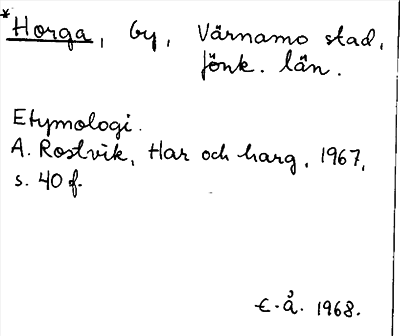 *Horga, by, Värnamo stad,
Jönk. län.
Etymologi.
A. Rostvik, Har och harg, 1967,
s. 40 f.
E.Å. 1968.